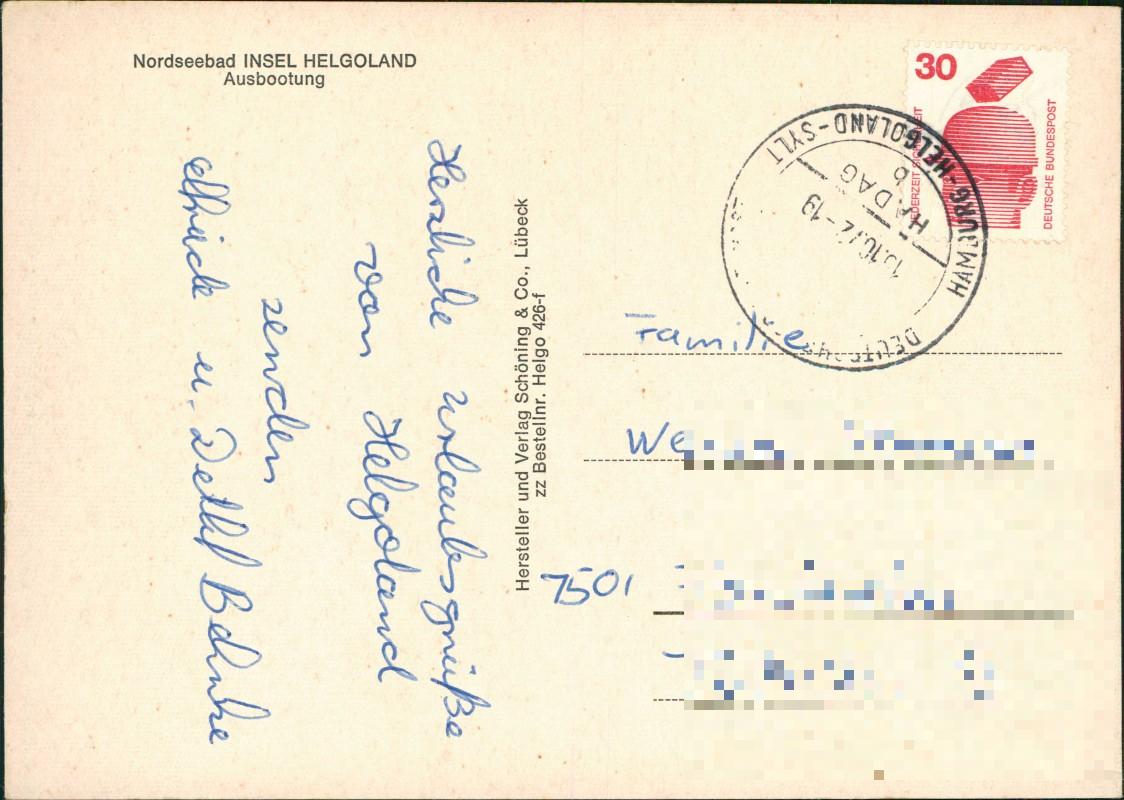 Nordseebad INSEL HELGOLAND
Ausbootung
Herzliche Urlaubsgrüße
von Helgoland
senden
Elfriede u. Detlef Behnke
Hersteller und Verlag Schöning & Co., Lübeck
zz Bestellnr. Helgo 426-f
30
JEDERZEIT
DEUTSCHE BUNDESPOST
HAMBURG-HELGOLAND-SYLT
HADAG
6
.10.72-19
DEUTSCHE
Familie
We
7501